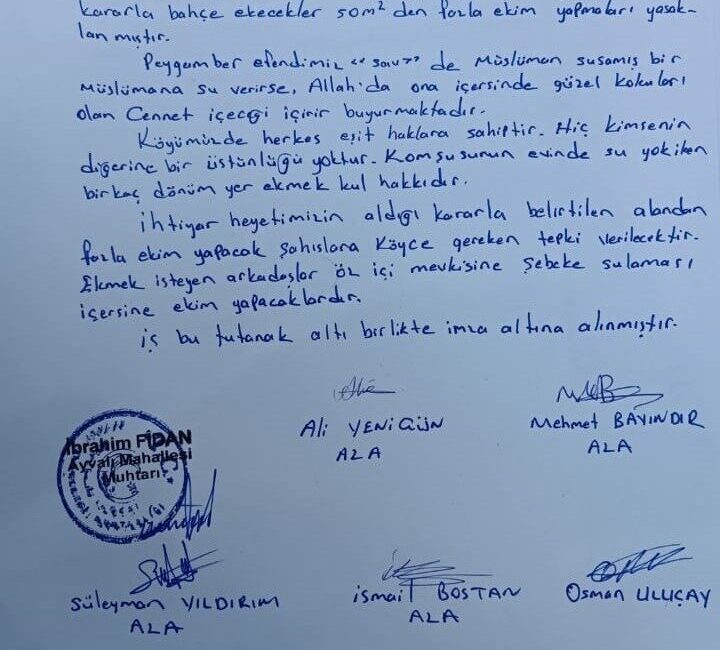 kararla bahçe ekecekler 50m² den fazla ekim yapmaları yasak-
lanmıştır.
Peygamber efendimiz "sav" de Müslüman susamış bir
Müslümana su verirse, Allah'da ona içersinde güzel kokuları
olan Cennet içeceği içirir buyurmaktadır.
Köyümüzde herkes eşit haklara sahiptir. Hiç kimsenin
diğerine bir üstünlüğü yoktur. Komşusunun evinde su yokiken
birkaç dönüm yer ekmek kul hakkıdır.
İhtiyar heyetimizin aldığı kararla belirtilen alandan
fazla ekim yapacak şahıslara Köyce gereken tepki verilecektir.
Ekmek isteyen arkadaşlar öz içi mevkisine şebeke sulaması
içersine ekim yapacaklardır.
iş bu tutanak altı birlikte imza altına alınmıştır.
Ali YENİGÜN
AZA
Mehmet BAYINDIR
ALA
İbrahim FİDAN
Ayvalı Mahallesi
Muhtarı
Süleyman YILDIRIM
ALA
ismail BOSTAN
ALA
Osman ULUÇAY